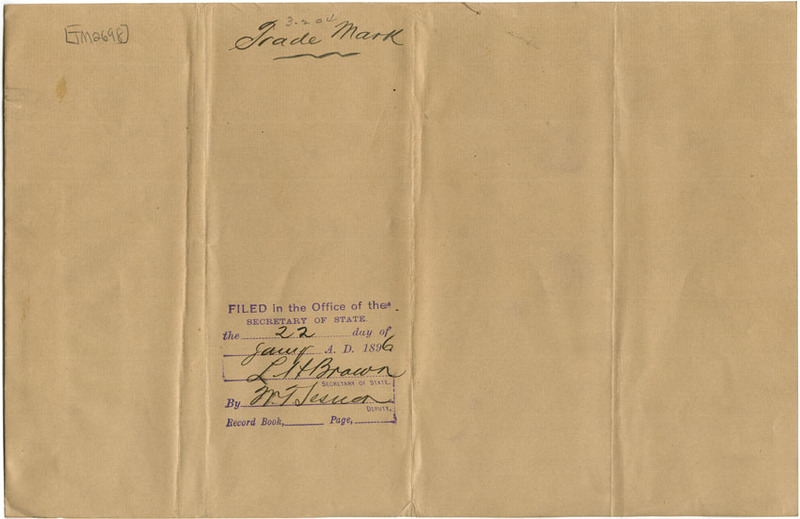 [TM2698]
3-2 04
Trade Mark
FILED in the Office of the
SECRETARY OF STATE.
the 22 day of
Jany A. D. 1896
L H Brown
SECRETARY OF STATE.
By W. T.
DEPUTY.
Record Book, Page,